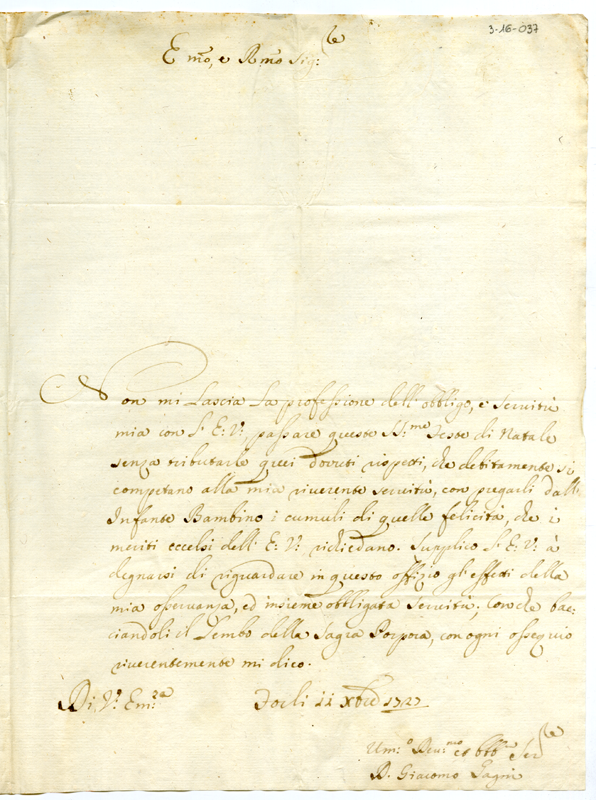 3-16-037
Emo, e Rmo Sig:re
Non mi Lascia La professione dell'obbligo, e servitù
mia con L'E: V:, passare queste SS:me Feste di Natale
senza tributarle quei dovuti rispetti, che debitamente si
competano alla mia riverente servitù, con pregarli dall'
Infante Bambino i cumuli di quelle felicità, che i
meriti eccelsi dell'E: V: richiedano. Supplico L'E: V: à
degnarsi di riguardare in questo offizio gl'effetti della
mia osservanza, ed insieme obbligata servitù; con che bac-
ciandoli il Lembo della Sagra Porpora, con ogni ossequio
riverentemente mi dico.
Di V: Em:za Forlì 11 Xbre 1727
Um:o Dev:mo et obb: Ser:re
D. Giacomo